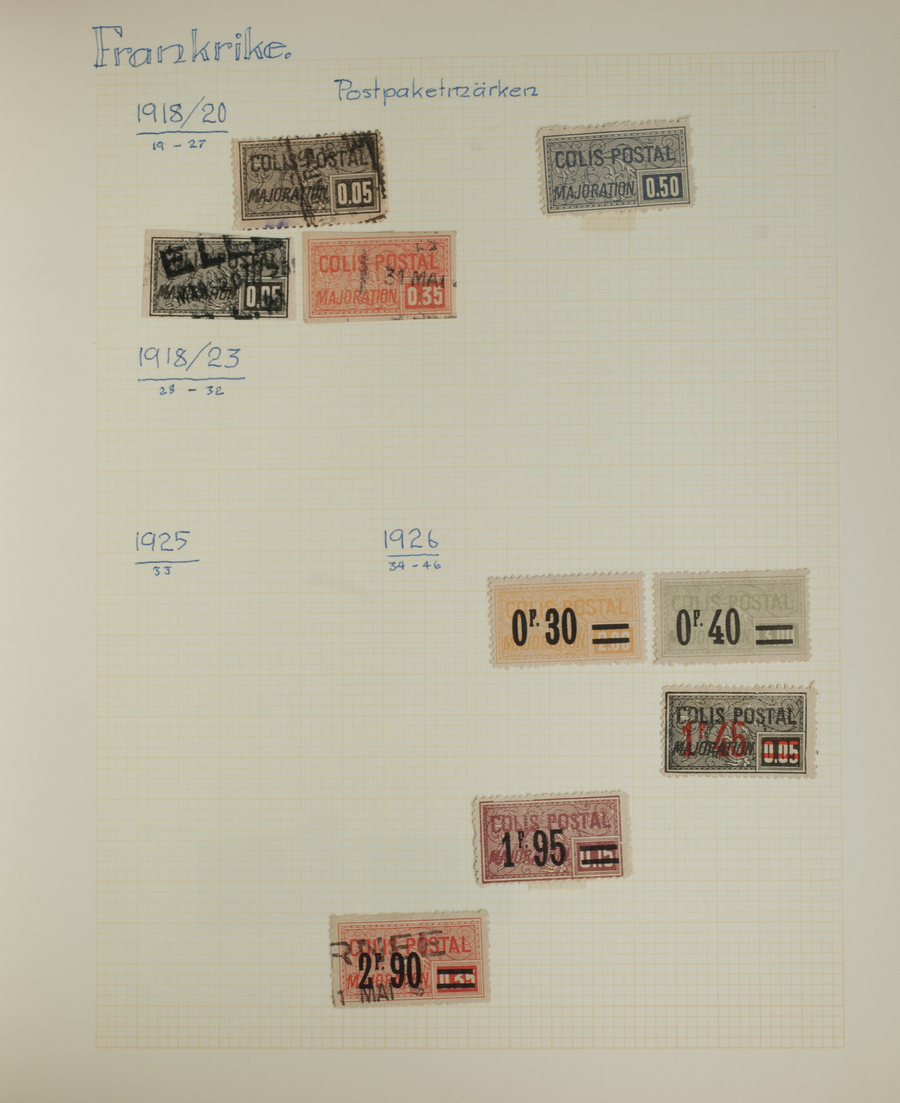 Frankrike.
Postpaketmärken
1918/20
19 - 27
COLIS POSTAL
MAJORATION 0.05
COLIS POSTAL
MAJORATION 0.50
0.05
COLIS POSTAL
31 MAI
MAJORATION 0.35
1918/23
28 - 32
1925
33
1926
34 - 46
COLIS POSTAL
0F.30
COLIS POSTAL
0F.40
COLIS POSTAL
1F45
MAJORATION 0.05
COLIS POSTAL
1F.95
COLIS POSTAL
2F.90
MAI